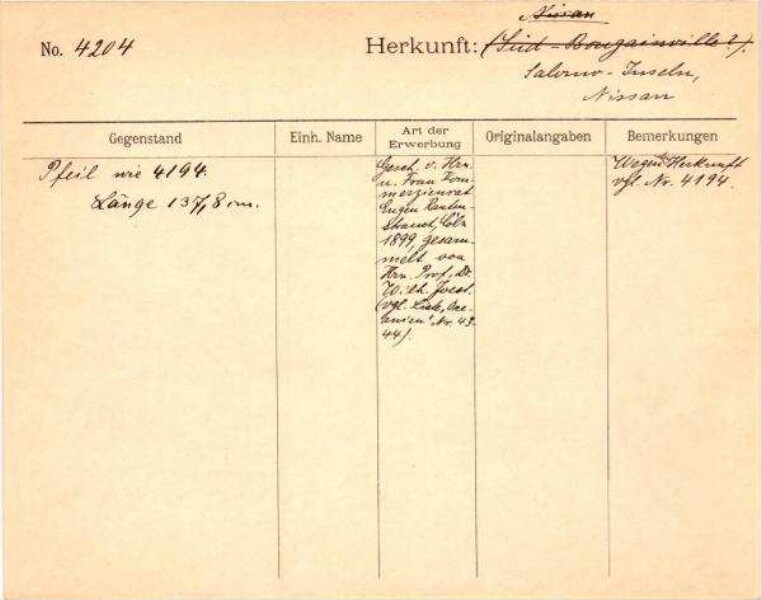 Nissan
No. 4204
Herkunft: (Süd-Bougainville?).
Salomo-Inseln,
Nissan
Gegenstand
Einh. Name
Art der Erwerbung
Originalangaben
Bemerkungen
Pfeil wie 4194.
Länge 137,8 cm.
Gesch. v. Hrn.
u. Frau Kom-
merzienrat
Eugen Rauten-
strauch, Cöln
1899, gesam-
melt von
Hrn. Prof. Dr.
Wilh. Joest.
(vgl. Liste „Oce-
anien" Nr. 43-
44).
Wegen der Herkunft
vgl. Nr. 4194.